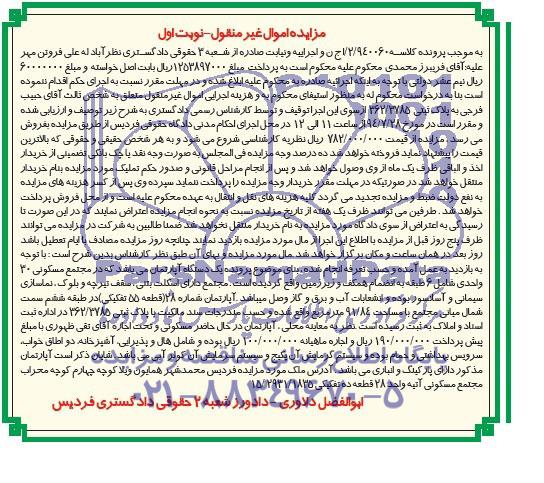 مزایده اموال غیر منقول-نوبت اول
به موجب پرونده کلاسه ۲/۹۴۰۰۶۰/اج ن و اجراییه ونیابت صادره از شعبه ۳ حقوقی دادگستری نظرآباد له علی فروتن مهر
علیه: آقای فریبرز محمدی محکوم علیه محکوم است به پرداخت مبلغ ۱۲۵۳۸۹۷۰۰۰ ریال بابت اصل خواسته و مبلغ ۶۰۰۰۰۰۰۰
ریال نیم عشر دولتی با توجه به اینکه اجرائیه صادره به محکوم علیه ابلاغ شده و در مهلت مقرر نسبت به اجرای حکم اقدام ننموده
است بنا به درخواست محکوم له به منظور استیفای محکوم به و هزینه اجرایی اموال غیر منقول متعلق به شخص ثالث آقای حبیب
فرجی به پلاک ثبتی ۳۶۲/۳۷۸۵ از سوی این اجرا توقیف و توسط کارشناس رسمی دادگستری به شرح زیر توصیف و ارزیابی شده
و مقرر است در مورخ ۹۴/۷/۲۸ از ساعت ۱۱ الی ۱۲ در محل اجرای احکام مدنی دادگاه حقوقی فردیس از طریق مزایده بفروش
می رسد . مزایده از قیمت ۷۸۲/۰۰۰/۰۰۰ ریال نظریه کارشناسی شروع می شود و به هر شخص حقیقی و حقوقی که بالاترین
قیمت را پیشنهاد نماید فروخته خواهد شد ده درصد وجه مزایده فی المجلس به صورت وجه نقد یا چک بانکی تضمینی از خریدار
اخذ و الباقی ظرف یک ماه از وی وصول خواهد شد و پس از انجام مراحل قانونی و صدور حکم تملیک مورد مزایده بنام خریدار
منتقل خواهد شد در صورتیکه در مهلت مقرر خریدار وجه مزایده را پرداخت ننماید سپرده وی پس از کسر هزینه های مزایده
به نفع دولت ضبط و مزایده تجدید می گردد کلیه هزینه های نقل و انتقال به عهده محکوم علیه است و از محل فروش پرداخت
خواهد شد . طرفین می توانند ظرف یک هفته از تاریخ مزایده نسبت به نحوه انجام مزایده اعتراض نمایند که در این صورت تا
رسیدگی به اعتراض از سوی دادگاه مورد مزایده به نام خریدار منتقل نخواهد شد ضمنا طالبین به شرکت در مزایده می توانند
ظرف پنج روز قبل از مزایده با اطلاع این اجرا از مال مورد مزایده بازدید نمایند چنانچه روز مزایده مصادف با ایام تعطیل باشد
روز بعد در همان ساعت و مکان برگزار خواهد شد. مال مورد مزایده و بهای آن طبق نظر کارشناس بدین شرح است : با توجه
به بازدید به عمل آمده و حسب تعرفه انجام شده بنای موضوع پرونده یک دستگاه آپارتمان می باشد که در مجتمع مسکونی ۳۰
واحدی شامل ۶ طبقه به انضمام همکف و زیرزمین واقع گردیده است. مجتمع دارای اسکلت بتنی سقف تیرچه و بلوک ، نماسازی
سیمانی و آسانسور بوده و انشعابات آب و برق و گاز وصل میباشد. آپارتمان شماره ۲۸ (قطعه ۵۵ تفکیکی) در طبقه ششم سمت
شمال میانی مجتمع با مساحت ۹۱/۸۴ مترمربع واقع شده و حسب مندرجات سند مالکیت با پلاک ثبتی ۳۶۲/۳۷۸۵ در اداره ثبت
اسناد و املاک به ثبت رسیده است .نظر به معاینه محلی ، آپارتمان در حال حاضر مسکونی و تحت اجاره آقای تقی ظهوری با مبلغ
پیش پرداخت ۱۹۰/۰۰۰/۰۰۰ ریال و اجاره ماهیانه ۲/۰۰۰/۰۰۰ ریال بوده و شامل هال و پذیرایی، آشپزخانه، دو اطاق خواب،
سرویس بهداشتی و حمام بوده و سیستم گرمایش آن پکیج و سیستم سرمایش آن کولر آبی می باشد .شایان ذکر است آپارتمان
مذکور دارای پارکینگ و انباری می باشد. آدرس ملک مورد مزایده فردیس محمدشهر همایون ویلا کوچه چهارم کوچه محراب
مجتمع مسکونی آتیه واحد ۲۸ قطعه ده تفکیکی ۱۵/۲۹۳۱/۱۸۳۵
ابوالفضل دلاوری -دادورز شعبه ۲ حقوقی دادگستری فردیس
پایگاه اطلاع رسانی مناقصات و مزایدات
۰۲۱-۸۸۳۴۹۶۷۰-۵